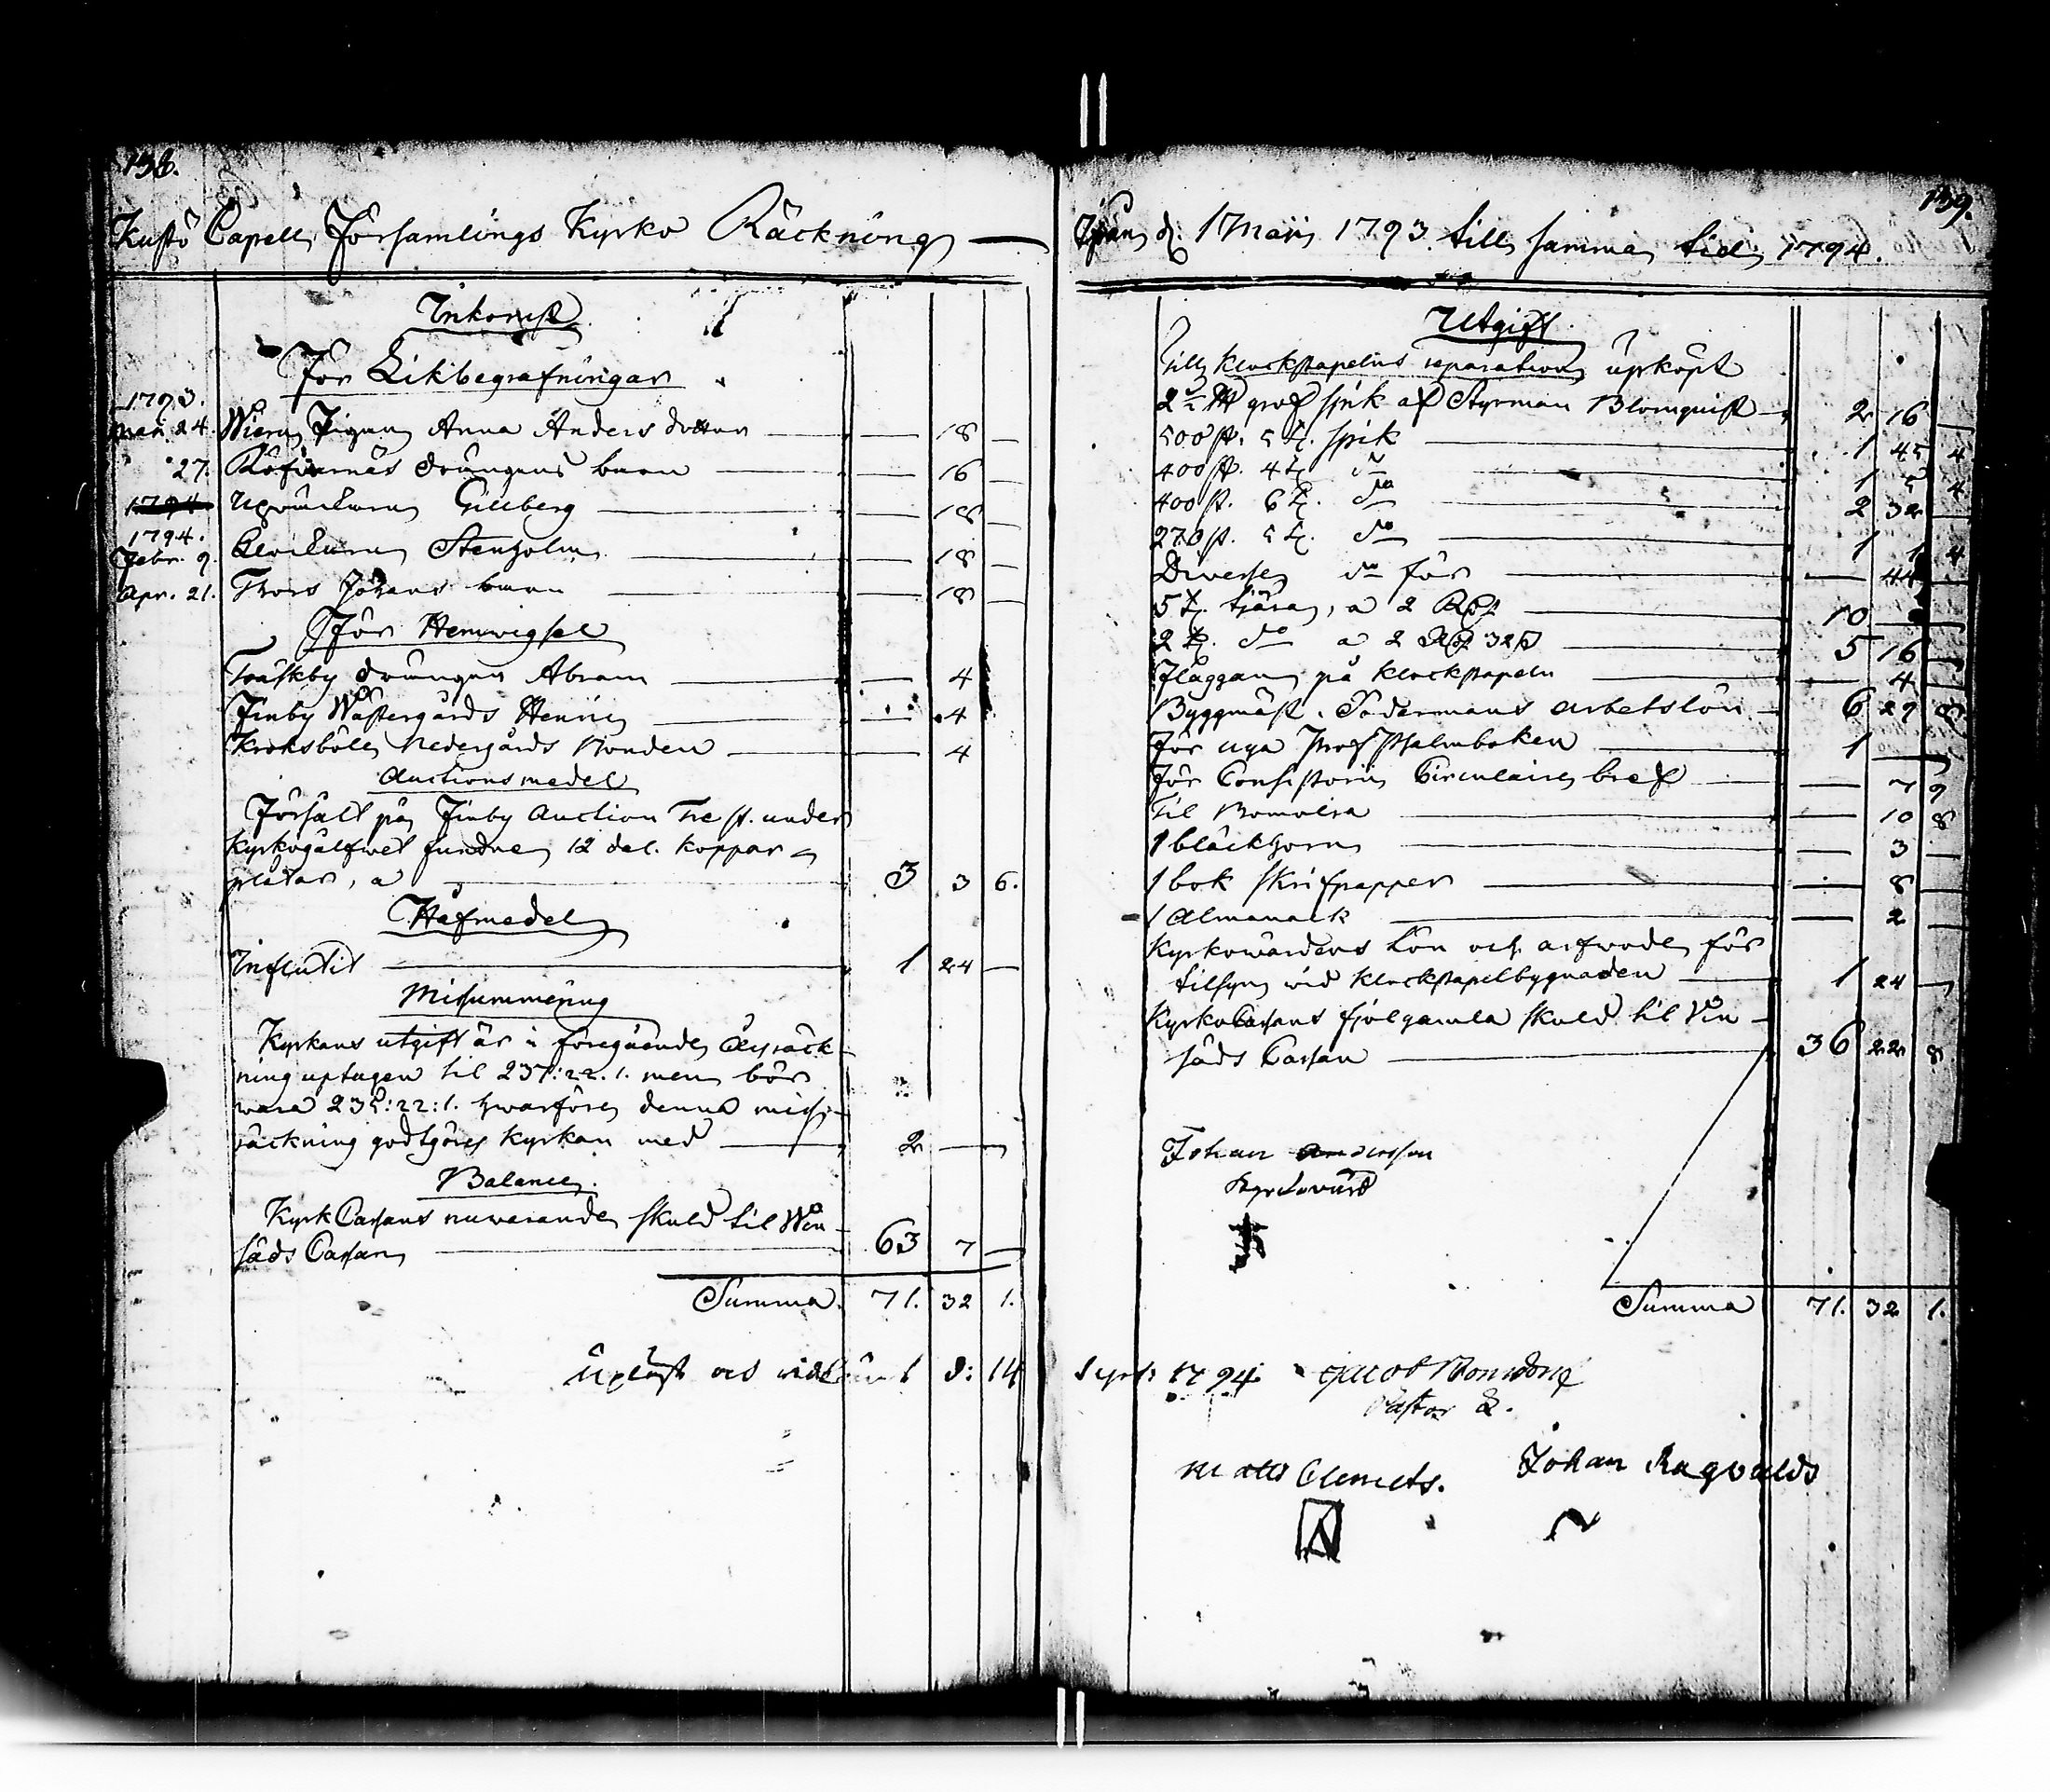 138.
Kustö Capells Församlings Kyrko Räckning
Inkomst
För Likbegrafningar
1793.
Maii 24. Anna Anders dotter — 18 —
" 27. drängens barn — 16 —
1794
Gilleberg — 18 —
1794.
Febr. 9. Stenholm — 18 —
Apr. 21. Thors Johans barn — 18 —
För Hemwigsel
Träskby drängen Abram — 4
Finby Wästergårds Henric — 4
Kroksböle Nedergårds Bonden — 4
Auctionsmedel
Försält på Finby Auction Tre st. under
kyrkogålfwet fundne 12 dal. koppar
plåtar, a 3 3 6.
Håfmedel
Influtit 1 24 —
Missummering
Kyrkans utgift är i föregående Års räck-
ning uptagen til 237:22.1. men bör
wara 235:22:1. hwarföre denna miss-
räckning godtgöres kyrkan med 2 —
Balance.
Kyrk Cassans nuwarande skuld til Win-
säds Cassan 63 7 —
Summa. 71. 32 1.
Upläst och d: 14
139.
Ifrån d. 1 Maii 1793 till samma tid 1794.
Utgift
Till klockstapelns reparation upköpt
2½ grof spik af Styrman Blomquist 2 16 —
500 st. 5 spik 1 45 4
400 st. 4 do 1 5 4
400 st. 6 do 2 32 —
270 st. 5 do 1 1 4
Diverse do för — 44 —
5 tjära, a 2 Rd 10 — —
2 do a 2 Rd 32 s 5 16 —
Flaggan på klockstapeln — 4 —
Byggmäst. Södermans arbetslön 6 29 8
För nya Prof Psalmboken 1 —
För Consistorii Circulaire bref — 7 9
Til Bomolja — 10 8
1 bläckhorn — 3 —
1 bok skrifpapper — 8 —
1 Almanack — 2 —
Kyrkowärdens Lön och arfwode för
tilsyn wid klockstapelbygnaden 1 24 —
Kyrko Cassans fjolgamla skuld til Win-
säds Cassan 36 22 8
Johan Andersson
Kyrkovärd
Summa 71. 32 1.
Sept: 1794. Jacob Bonsdorff
Pastor L.
Matts Clemets. Johan Ragvalds